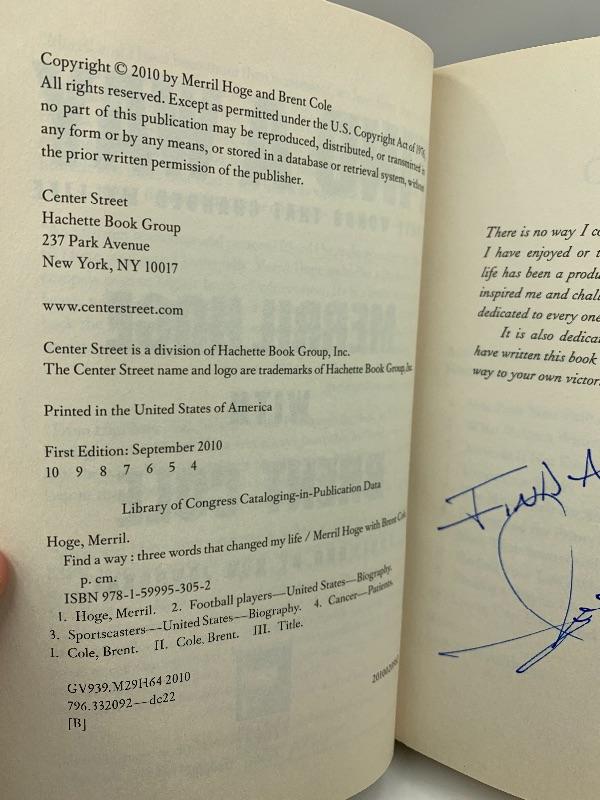 Copyright © 2010 by Merril Hoge and Brent Cole
All rights reserved. Except as permitted under the U.S. Copyright Act of 1976,
no part of this publication may be reproduced, distributed, or transmitted in
any form or by any means, or stored in a database or retrieval system, without
the prior written permission of the publisher.
Center Street
Hachette Book Group
237 Park Avenue
New York, NY 10017
www.centerstreet.com
Center Street is a division of Hachette Book Group, Inc.
The Center Street name and logo are trademarks of Hachette Book Group, Inc.
Printed in the United States of America
First Edition: September 2010
10 9 8 7 6 5 4
Library of Congress Cataloging-in-Publication Data
Hoge, Merril.
Find a way : three words that changed my life / Merril Hoge with Brent Cole.
p. cm.
ISBN 978-1-59995-305-2
1. Hoge, Merril. 2. Football players—United States—Biography.
3. Sportscasters—United States—Biography. 4. Cancer—Patients.
I. Cole, Brent. II. Cole, Brent. III. Title.
GV939.M29H64 2010
796.332092--dc22
[B]
There is no way I co
I have enjoyed or t
life has been a produ
inspired me and chal
dedicated to every one
It is also dedica
have written this book
way to your own victor
FIND A